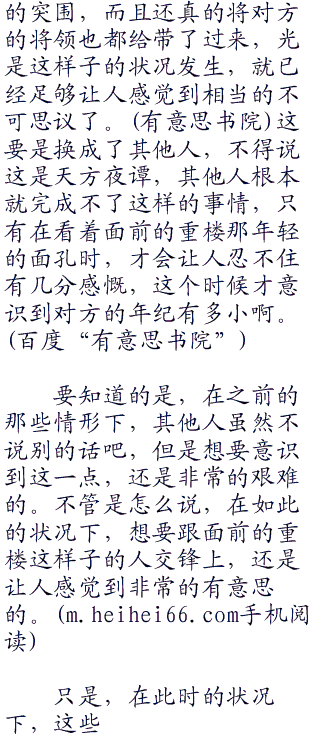 的突围，而且还真的将对方
的将领也都给带了过来，光
是这样子的状况发生，就已
经足够让人感觉到相当的不
可思议了。(有意思书院)这
要是换成了其他人，不得说
这是天方夜谭，其他人根本
就完成不了这样的事情，只
有在看着面前的重楼那年轻
的面孔时，才会让人忍不住
有几分感慨，这个时候才意
识到对方的年纪有多小啊。
(百度“有意思书院”)
要知道的是，在之前的
那些情形下，其他人虽然不
说别的话吧，但是想要意识
到这一点，还是非常的艰难
的。不管是怎么说，在如此
的状况下，想要跟面前的重
楼这样子的人交锋上，还是
让人感觉到非常的有意思
的。(m.heihei66.com手机阅
读)
只是，在此时的状况
下，这些